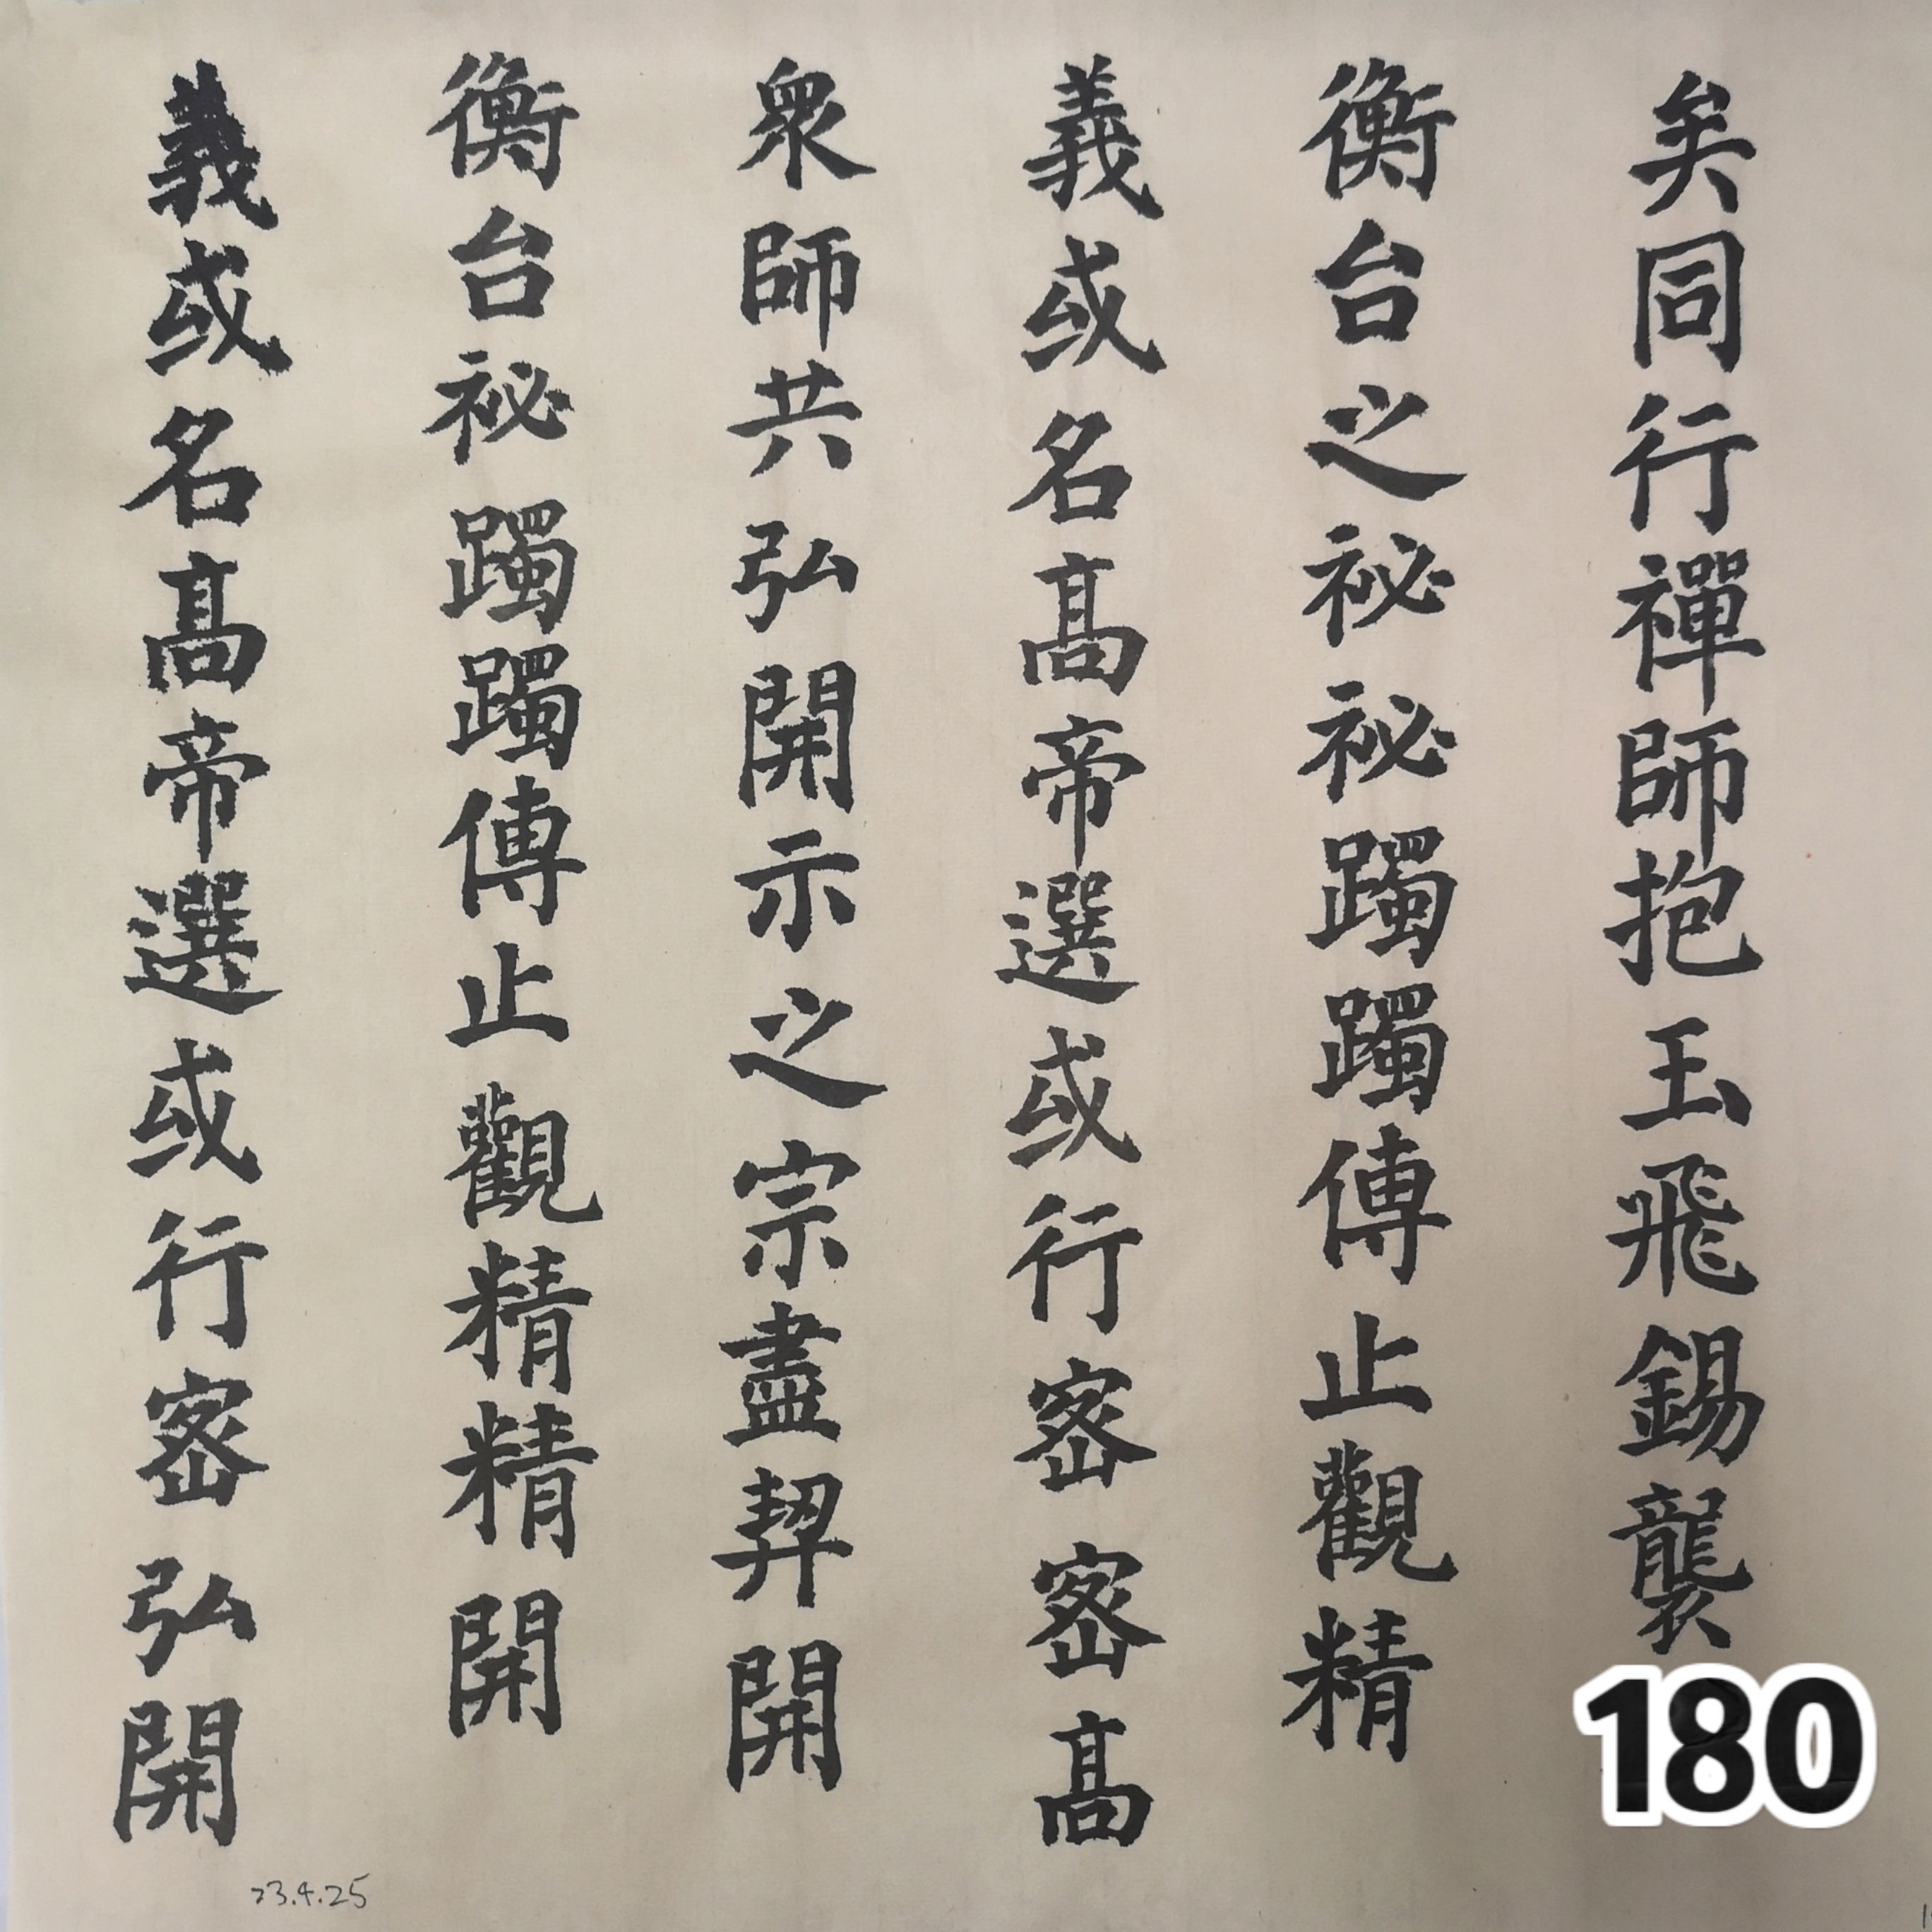 矣同行禪師抱玉飛錫襲
衡台之祕祕躅躅傳止觀精
義或名高帝選或行密密高
衆師共弘開示之宗盡契開
衡台祕躅躅傳止觀精精開
義或名高帝選或行密弘開
180
23.4.25